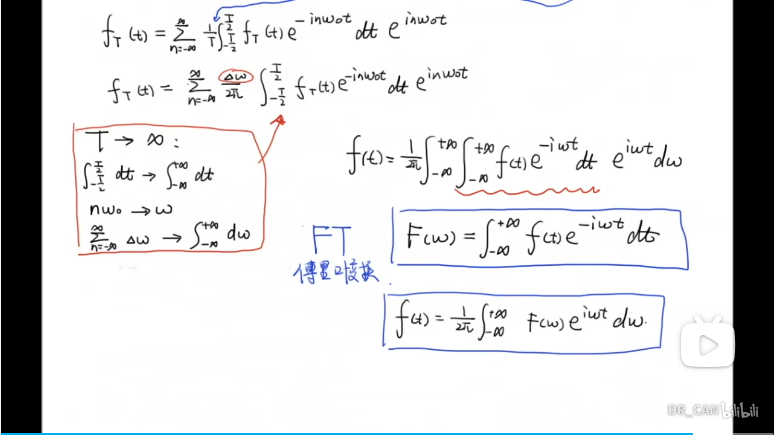 f_T(t) = ∑_{n=-∞}^{∞} 1/T ∫_{-T/2}^{T/2} f_T(t) e^{-inω₀t} dt e^{inω₀t}
f_T(t) = ∑_{n=-∞}^{∞} Δω/2π ∫_{-T/2}^{T/2} f_T(t) e^{-inω₀t} dt e^{inω₀t}
T → ∞ :
∫_{-T/2}^{T/2} dt → ∫_{-∞}^{+∞} dt
nω₀ → ω
∑_{n=-∞}^{∞} Δω → ∫_{-∞}^{+∞} dω
f(t) = 1/2π ∫_{-∞}^{+∞} ∫_{-∞}^{+∞} f(t) e^{-iωt} dt e^{iωt} dω
FT
F(ω) = ∫_{-∞}^{+∞} f(t) e^{-iωt} dt
f(t) = 1/2π ∫_{-∞}^{+∞} F(ω) e^{iωt} dω.
DR_CAN bilibili